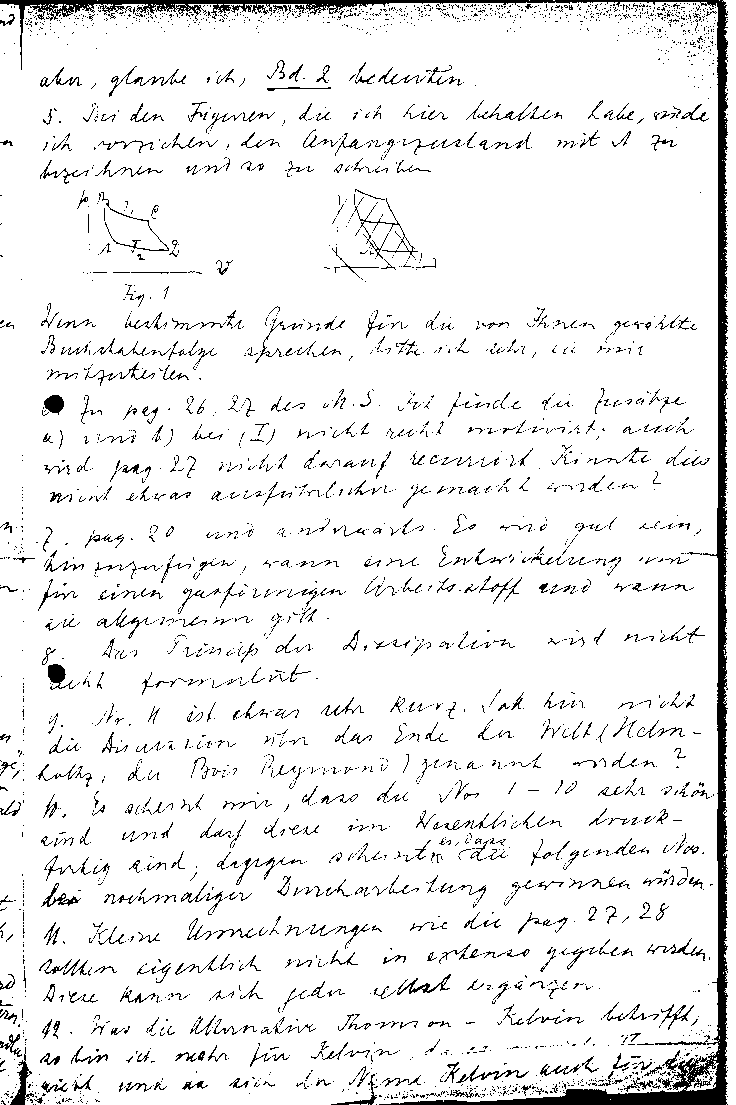 aber, glaube ich, Bd. 2 bedeuten.
5. Bei den Figuren, die ich hier behalten habe, würde
ich vorziehen, den Anfangszustand mit A zu
bezeichnen und so zu schreiben
p B 1 C
A 2 D
v
Fig. 1
Wenn bestimmte Gründe für die von Ihnen gewählte
Buchstabenfolge sprechen, bitte ich sehr, sie mir
mitzuteilen.
Zu pag. 26, 27 des M.S. Ich finde die Zusätze
a) und b) bei (I) nicht recht motivirt; auch
wird pag. 27 nicht darauf recurrirt. Könnte dies
nicht etwas ausführlicher gemacht werden?
7. pag. 20 und anderwärts. Es wird gut sein,
hinzuzufügen, wann eine Entwickelung nur
für einen gasförmigen Arbeitsstoff und wann
sie allgemein gilt.
8. Das Princip der Dissipation wird nicht
recht formulirt.
9. Nr. 11 ist etwas sehr kurz. Soll hier nicht
die Discussion über das Ende der Welt (Helm-
holtz, du Bois Reymond) genannt werden?
10. Es scheint mir, dass die Nos 1 – 10 sehr schön
sind und dass diese im Wesentlichen druck-
fertig sind, dagegen scheint es, dass die folgenden Nos.
bei nochmaliger Durcharbeitung gewinnen würden.
11. Kleine Umrechnungen wie die pag. 27, 28
sollten eigentlich nicht in extenso gegeben werden.
Diese kann sich jeder selbst ergänzen.
12. Was die Alternative Thomson – Kelvin betrifft,
so bin ich mehr für Kelvin, da
nicht und da sich der Name Kelvin auch für die